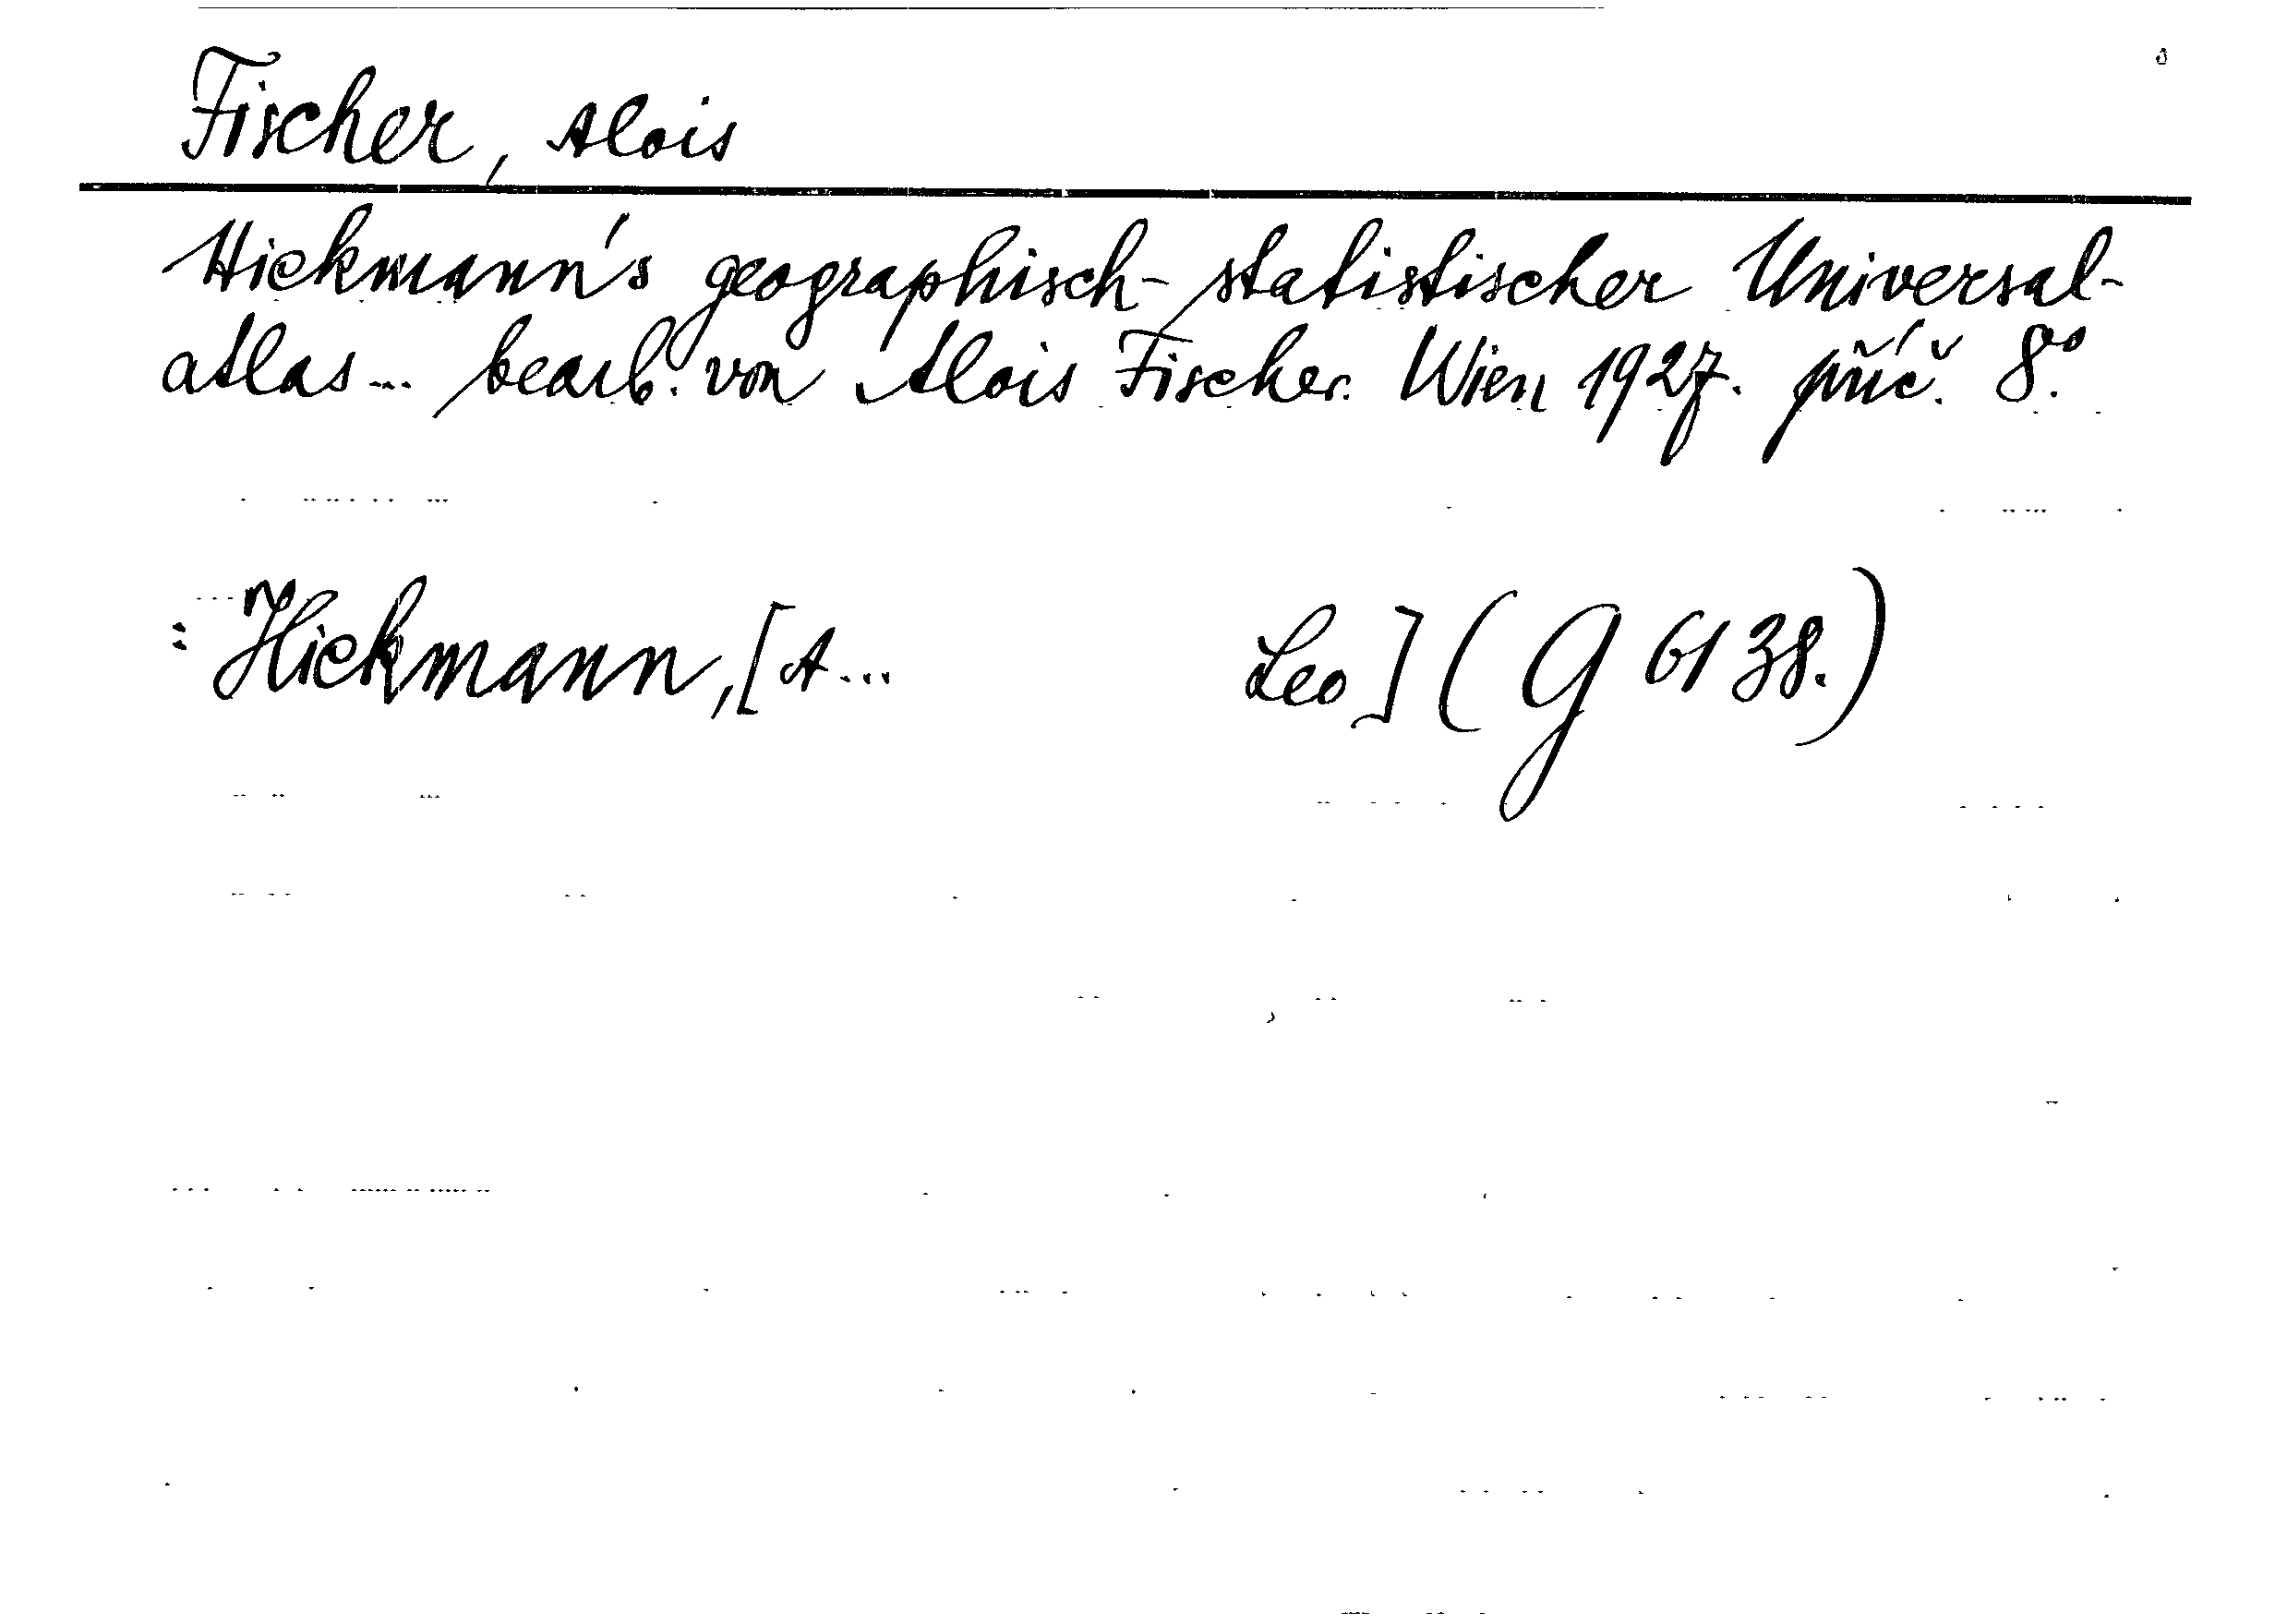 Fischer, Alois
Hickmann's geographisch-statistischer Universal-
atlas... bearb. von Alois Fischer. Wien 1927. příč. 8.°
: Hickmann, [A... Leo] (G 6138.)